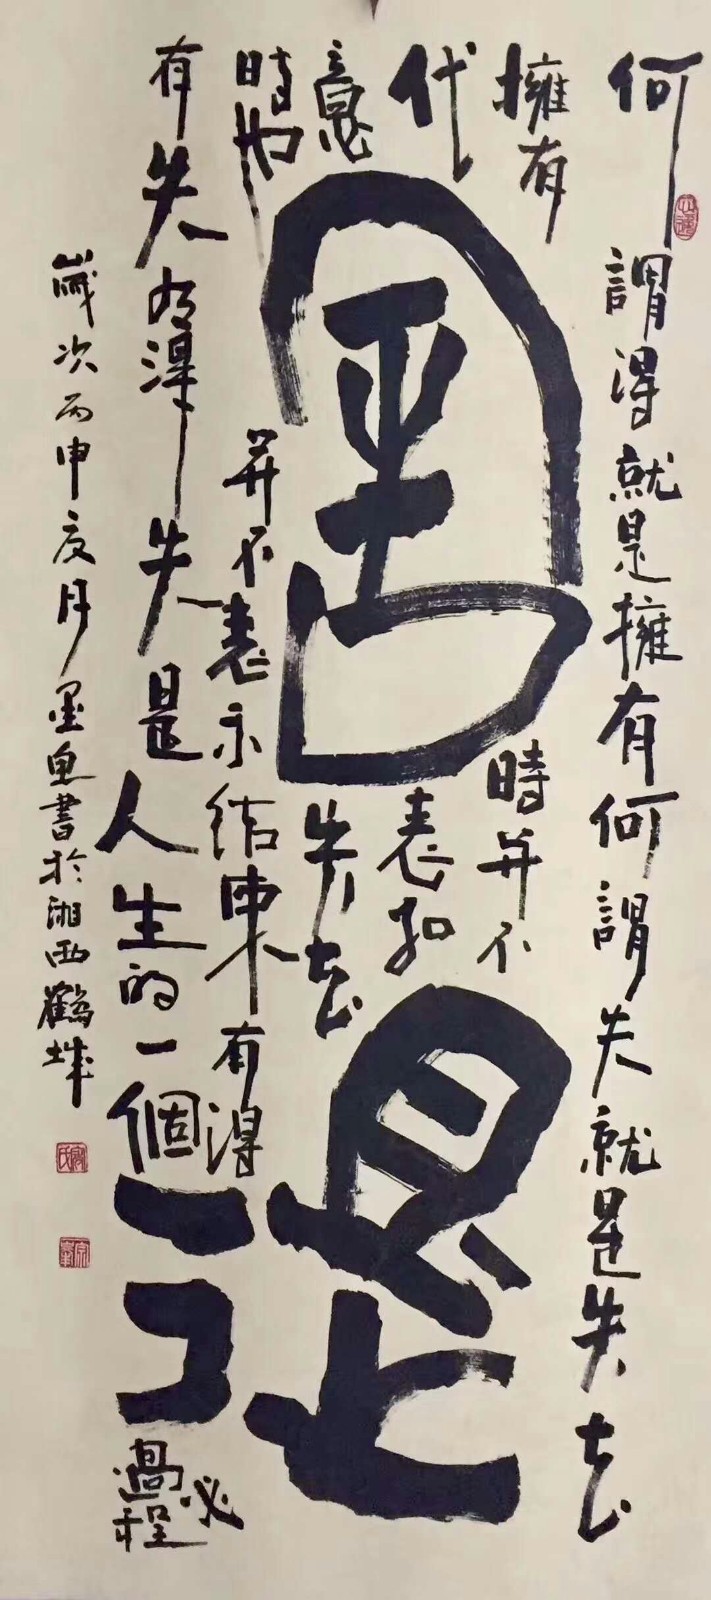 何謂得就是擁有何謂失就是失去
擁有時並不
代表如
意失去
時也並不表示結束有得必
有失得失是人生的一個過程
舍得
歲次丙申亥月墨魚書於湘西鶴城